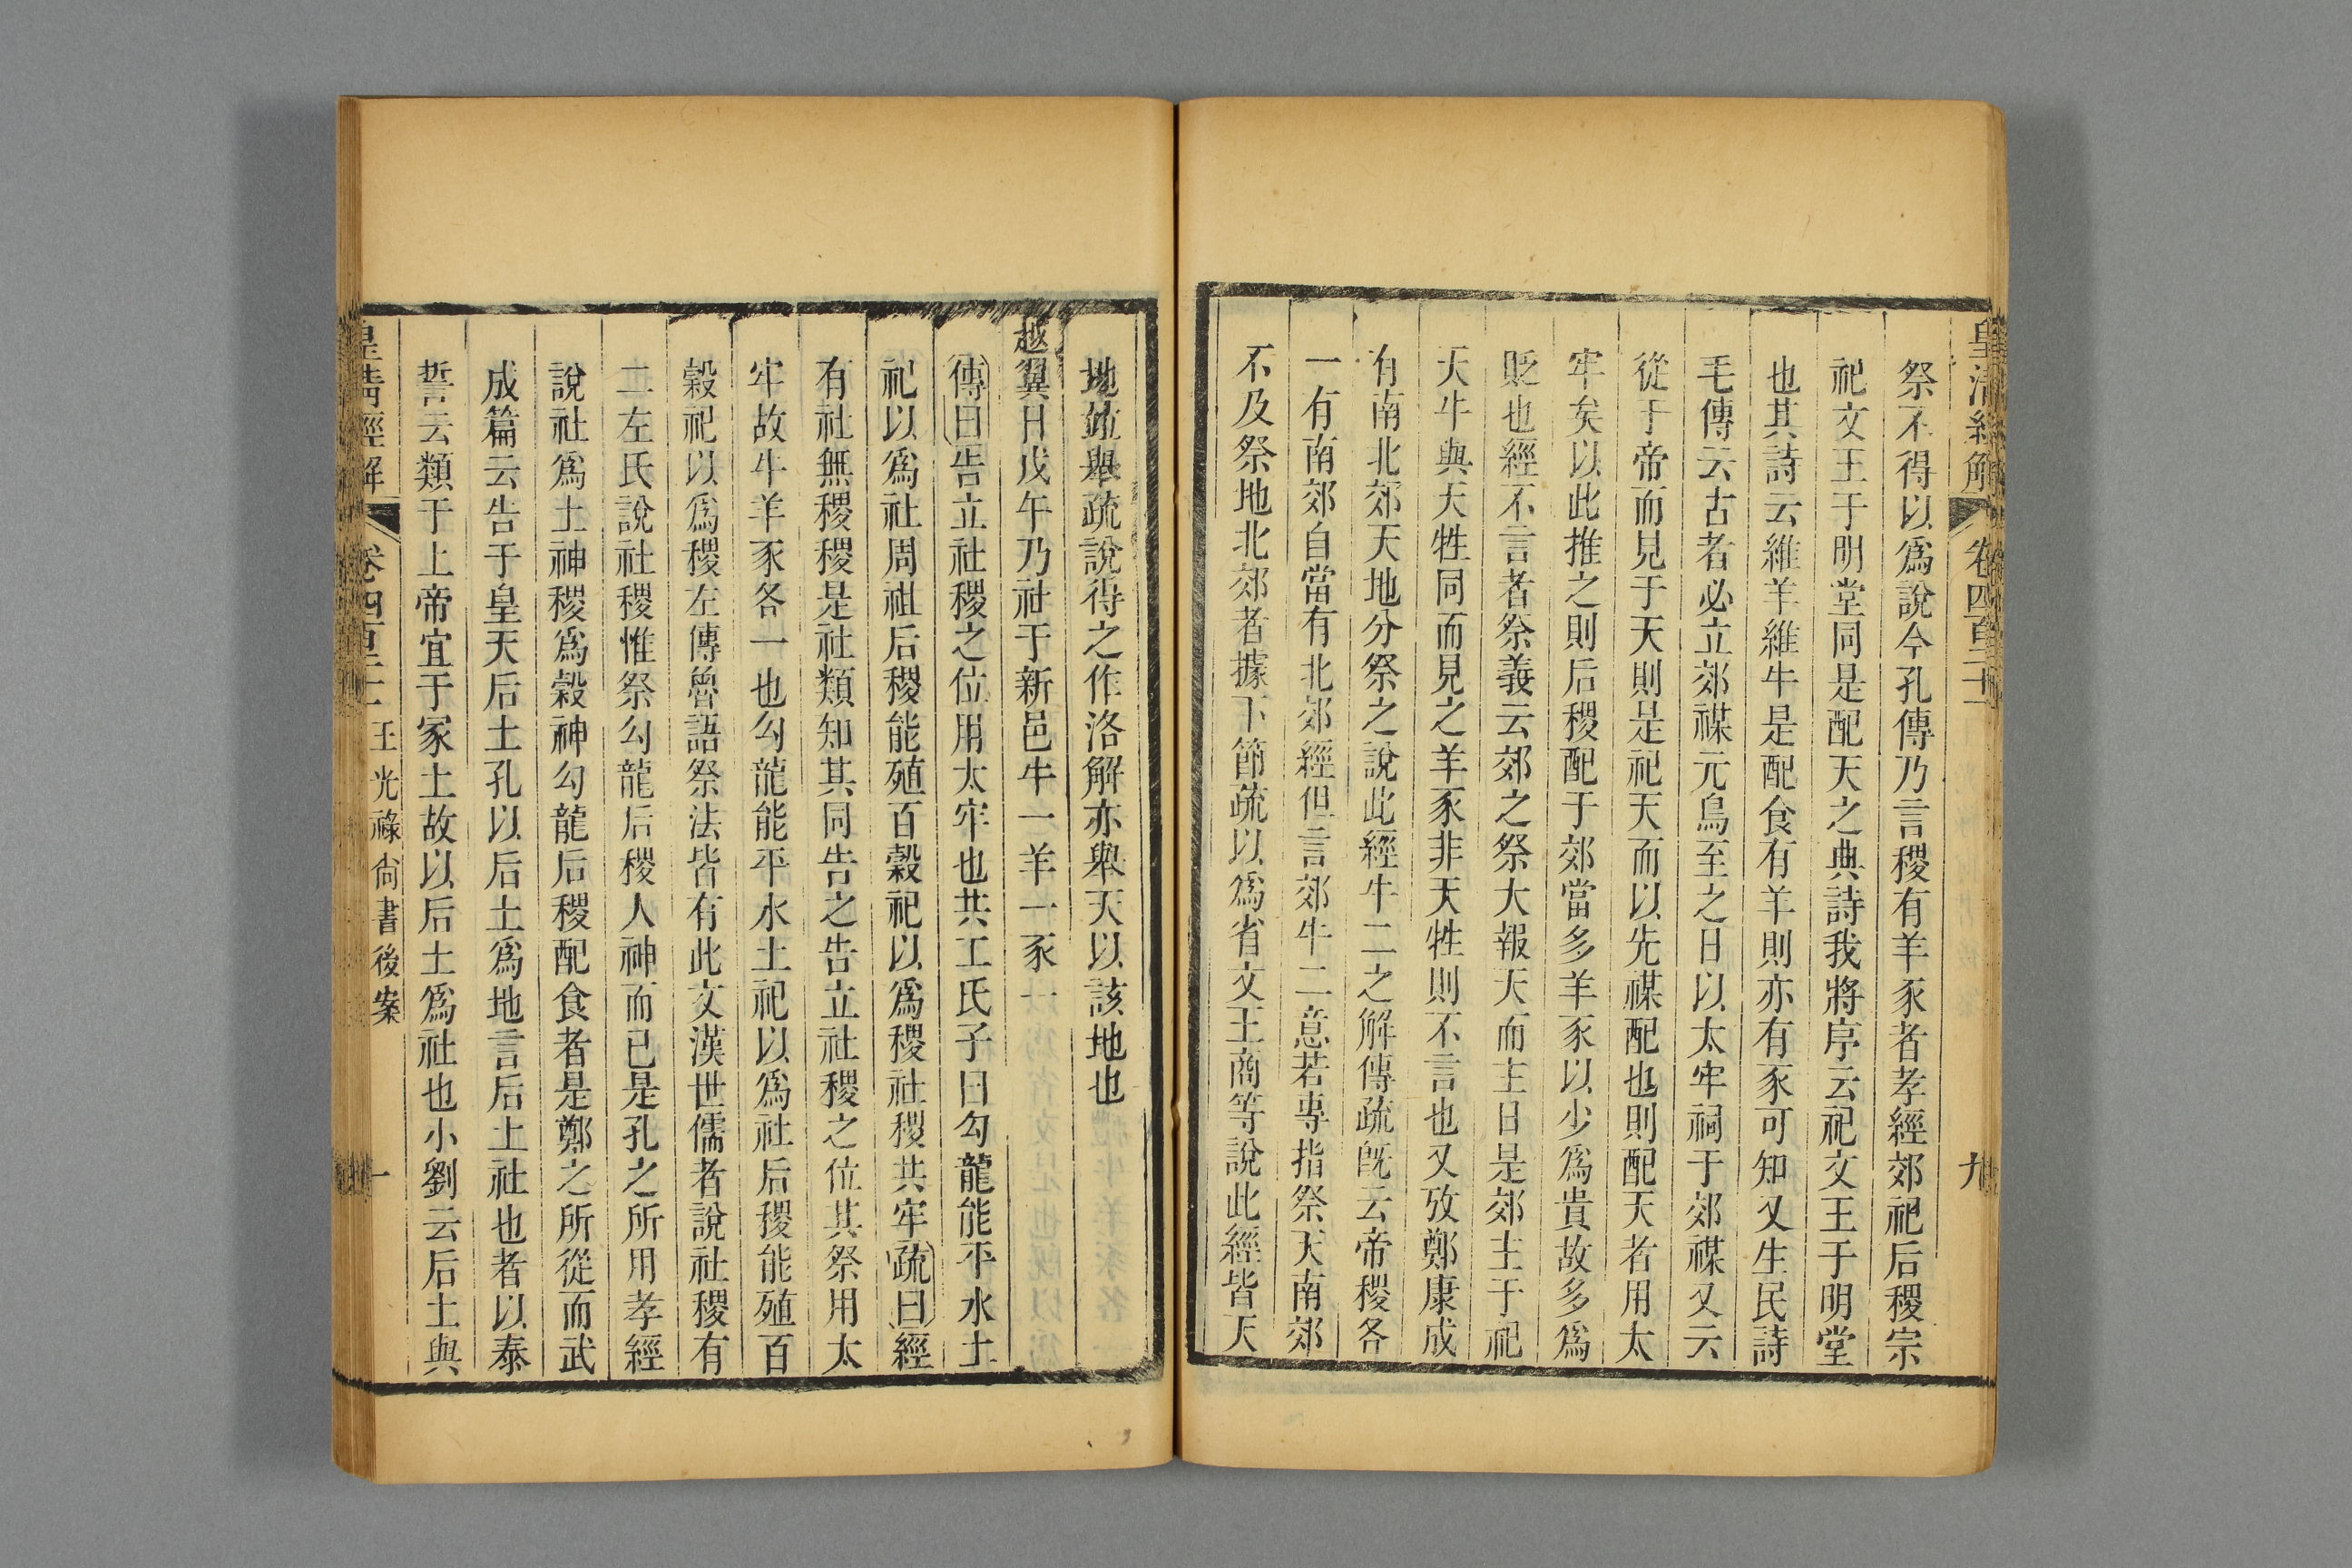 皇清經解
卷四百二十一
九
祭不得以爲說今孔傳乃言稷有羊豕者孝經郊祀后稷宗
祀文王于明堂同是配天之典詩我將序云祀文王于明堂
也其詩云維羊維牛是配食有羊則亦有豕可知又生民詩
毛傳云古者必立郊禖元鳥至之日以太牢祠于郊禖又云
從于帝而見于天則是祀天而以先禖配也則配天者用太
牢矣以此推之則后稷配于郊當多羊豕以少爲貴故多爲
貶也經不言者祭義云郊之祭大報天而主日是郊主于祀
天牛與天牲同而見之羊豕非天牲則不言也又攷鄭康成
有南北郊天地分祭之說此經牛二之解傳疏旣云帝稷各
一有南郊自當有北郊經但言郊牛二意若專指祭天南郊
不及祭地北郊者據下節疏以爲省文王商等說此經皆天
地竝舉疏說得之作洛解亦舉天以該地也
越翼日戊午乃社于新邑牛一羊一豕一
傳曰告立社稷之位用太牢也共工氏子曰勾龍能平水土
祀以爲社周祖后稷能殖百穀祀以爲稷社稷共牢疏曰經
有社無稷稷是社類知其同告之告立社稷之位其祭用太
牢故牛羊豕各一也勾龍能平水土祀以爲社后稷能殖百
穀祀以爲稷左傳魯語祭法皆有此文漢世儒者說社稷有
二左氏說社稷惟祭勾龍后稷人神而已是孔之所用孝經
說社爲土神稷爲穀神勾龍后稷配食者是鄭之所從而武
成篇云告于皇天后土孔以后土爲地言后土社也者以泰
誓云類于上帝宜于冢土故以后土爲社也小劉云后土與
皇清經解
卷四百二十一
王光祿尙書後案